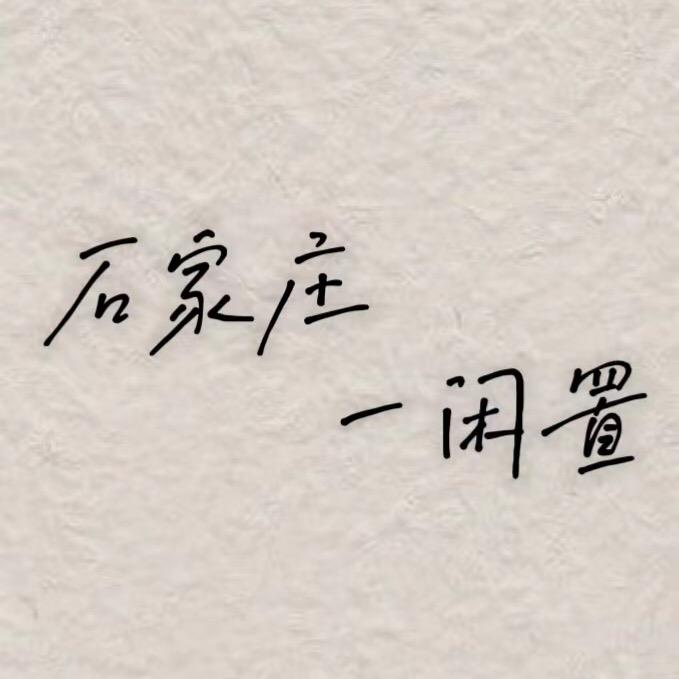 石家庄
一闲置